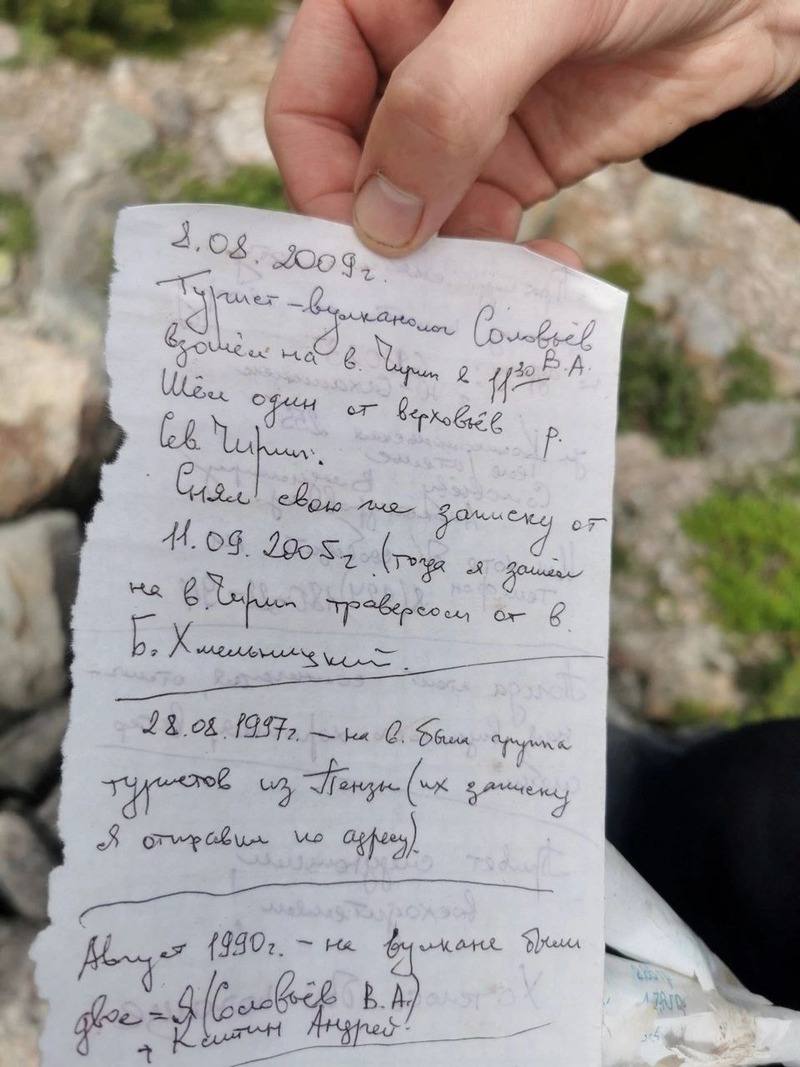 8.08.2009г.
Турист-вулканолог Соловьёв В.А.
взошёл на в. Чирип в 11³⁰
Шёл один от верховьев р.
Сев. Чирип.
Снял свою же записку от
11.09.2005г. (тогда я зашёл
на в. Чирип траверсом от в.
Б. Хмельницкий.
28.08.1997г. – на в. была группа
туристов из Пензы (их записку
я отправил по адресу).
Август 1990г. – на вулкане были
двое = Я (Соловьёв В.А.)
+ Андрей.